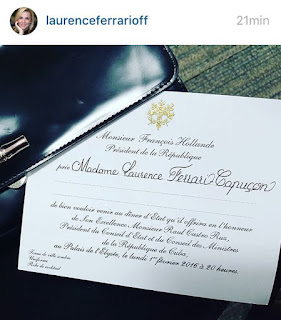 laurenceferrarioff
21min
Monsieur François Hollande
Président de la République
prie Madame Laurence Ferrari Capuçon
de bien vouloir venir au dîner d'Etat qu'il offrira en l'honneur
de Son Excellence Monsieur Raul Castro Ruz,
Président du Conseil d'Etat et du Conseil des Ministres
de la République de Cuba,
au Palais de l'Elysée, le lundi 1er février 2016 à 20 heures.
Tenue de ville sombre
Uniforme
Robe de cocktail